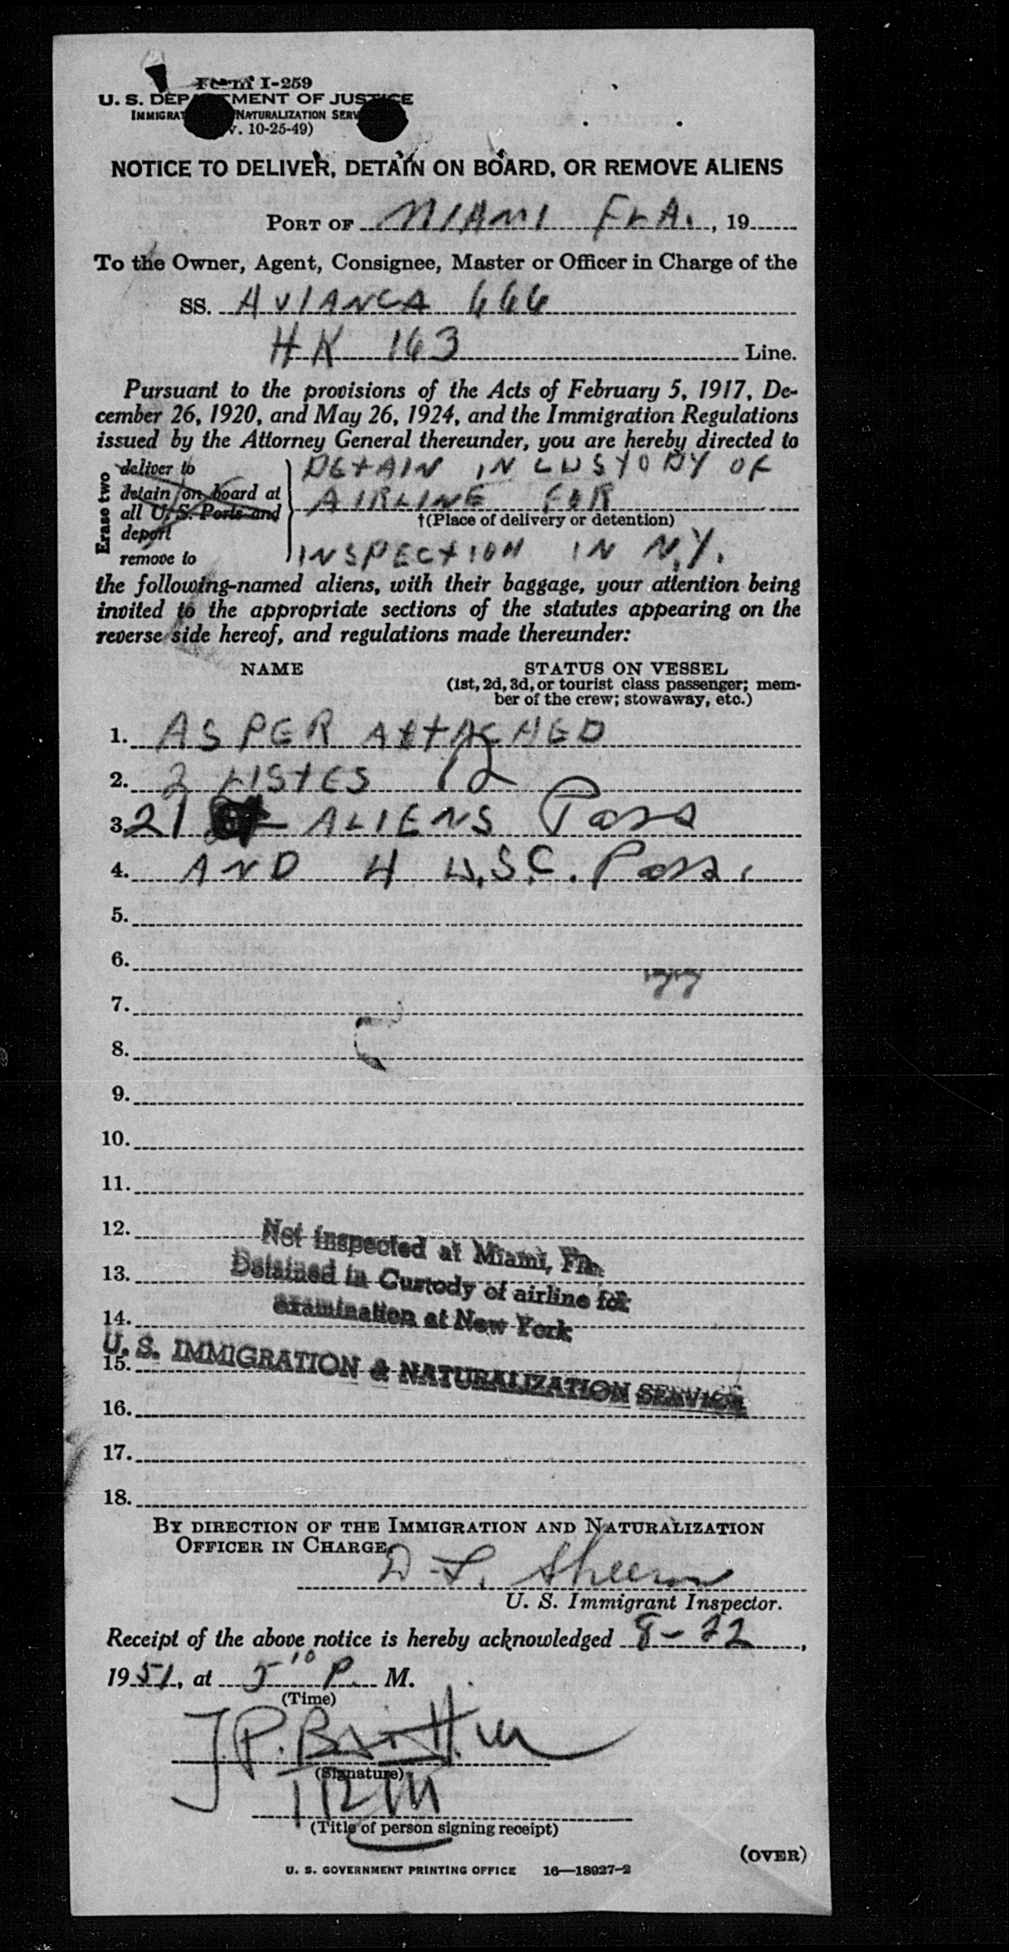 Form I-259
U. S. DEPARTMENT OF JUSTICE
IMMIGRA NATURALIZATION SERV
v. 10-25-49)
NOTICE TO DELIVER, DETAIN ON BOARD, OR REMOVE ALIENS
PORT OF MIAMI FLA., 19
To the Owner, Agent, Consignee, Master or Officer in Charge of the
SS. AVIANCA 666
HK 163 Line.
Pursuant to the provisions of the Acts of February 5, 1917, De-
cember 26, 1920, and May 26, 1924, and the Immigration Regulations
issued by the Attorney General thereunder, you are hereby directed to
Erase two
deliver to
detain on board at
all U. S. Ports and
deport
remove to
DETAIN IN CUSTODY OF
AIRLINE FOR
†(Place of delivery or detention)
INSPECTION IN N.Y.
the following-named aliens, with their baggage, your attention being
invited to the appropriate sections of the statutes appearing on the
reverse side hereof, and regulations made thereunder:
NAME STATUS ON VESSEL
(1st, 2d, 3d, or tourist class passenger; mem-
ber of the crew; stowaway, etc.)
1. AS PER ATTACHED
2. 2 LISTES 12
3. 21 ALIENS Pass
4. AND 4 U.S.C. Pass.
5.
6.
77
7.
8.
9.
10.
11.
12.
Not inspected at Miami, Fla.
13. Detained in Custody of airline for
14. examination at New York
U. S. IMMIGRATION & NATURALIZATION SERVICE
15.
16.
17.
18.
BY DIRECTION OF THE IMMIGRATION AND NATURALIZATION
OFFICER IN CHARGE,
D. L.
U. S. Immigrant Inspector.
Receipt of the above notice is hereby acknowledged 8-22,
1951, at 5 10 P. M.
(Time)
J.P. Brittin
(Signature)
(Title of person signing receipt)
(OVER)
U. S. GOVERNMENT PRINTING OFFICE 16—18027-2